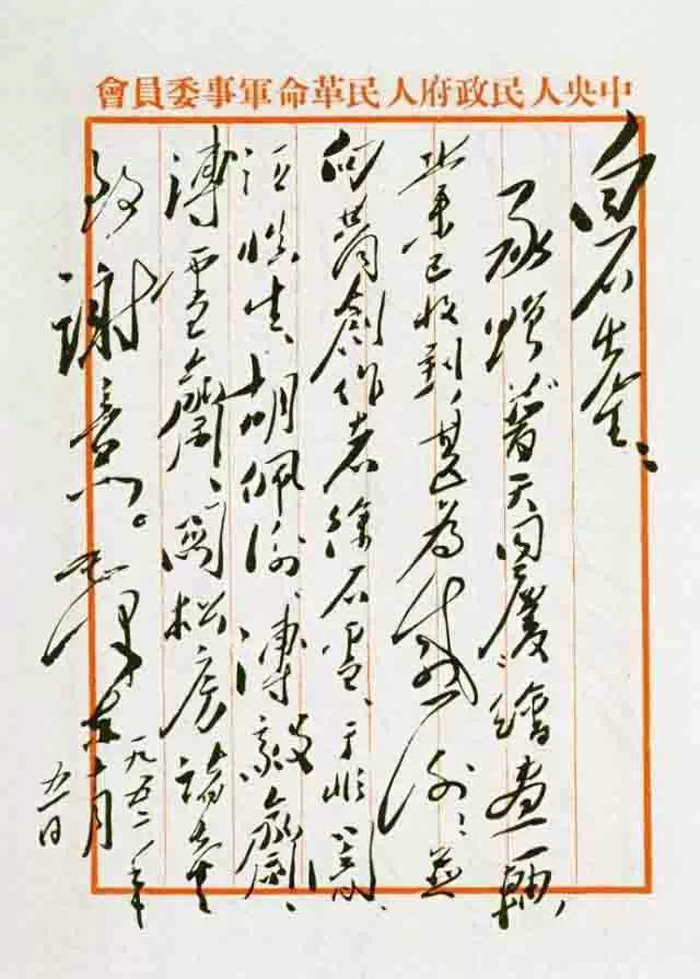 中央人民政府人民革命軍事委員會
白石先生：
承贈普天同慶繪畫一軸，
業已收到，甚為感謝！並
向共同創作者徐石雪、于非闇、
汪慎生、胡佩衡、溥毅齋、
溥雪齋、關松房諸先生
致謝意。毛澤東
一九五二年
十月
五日